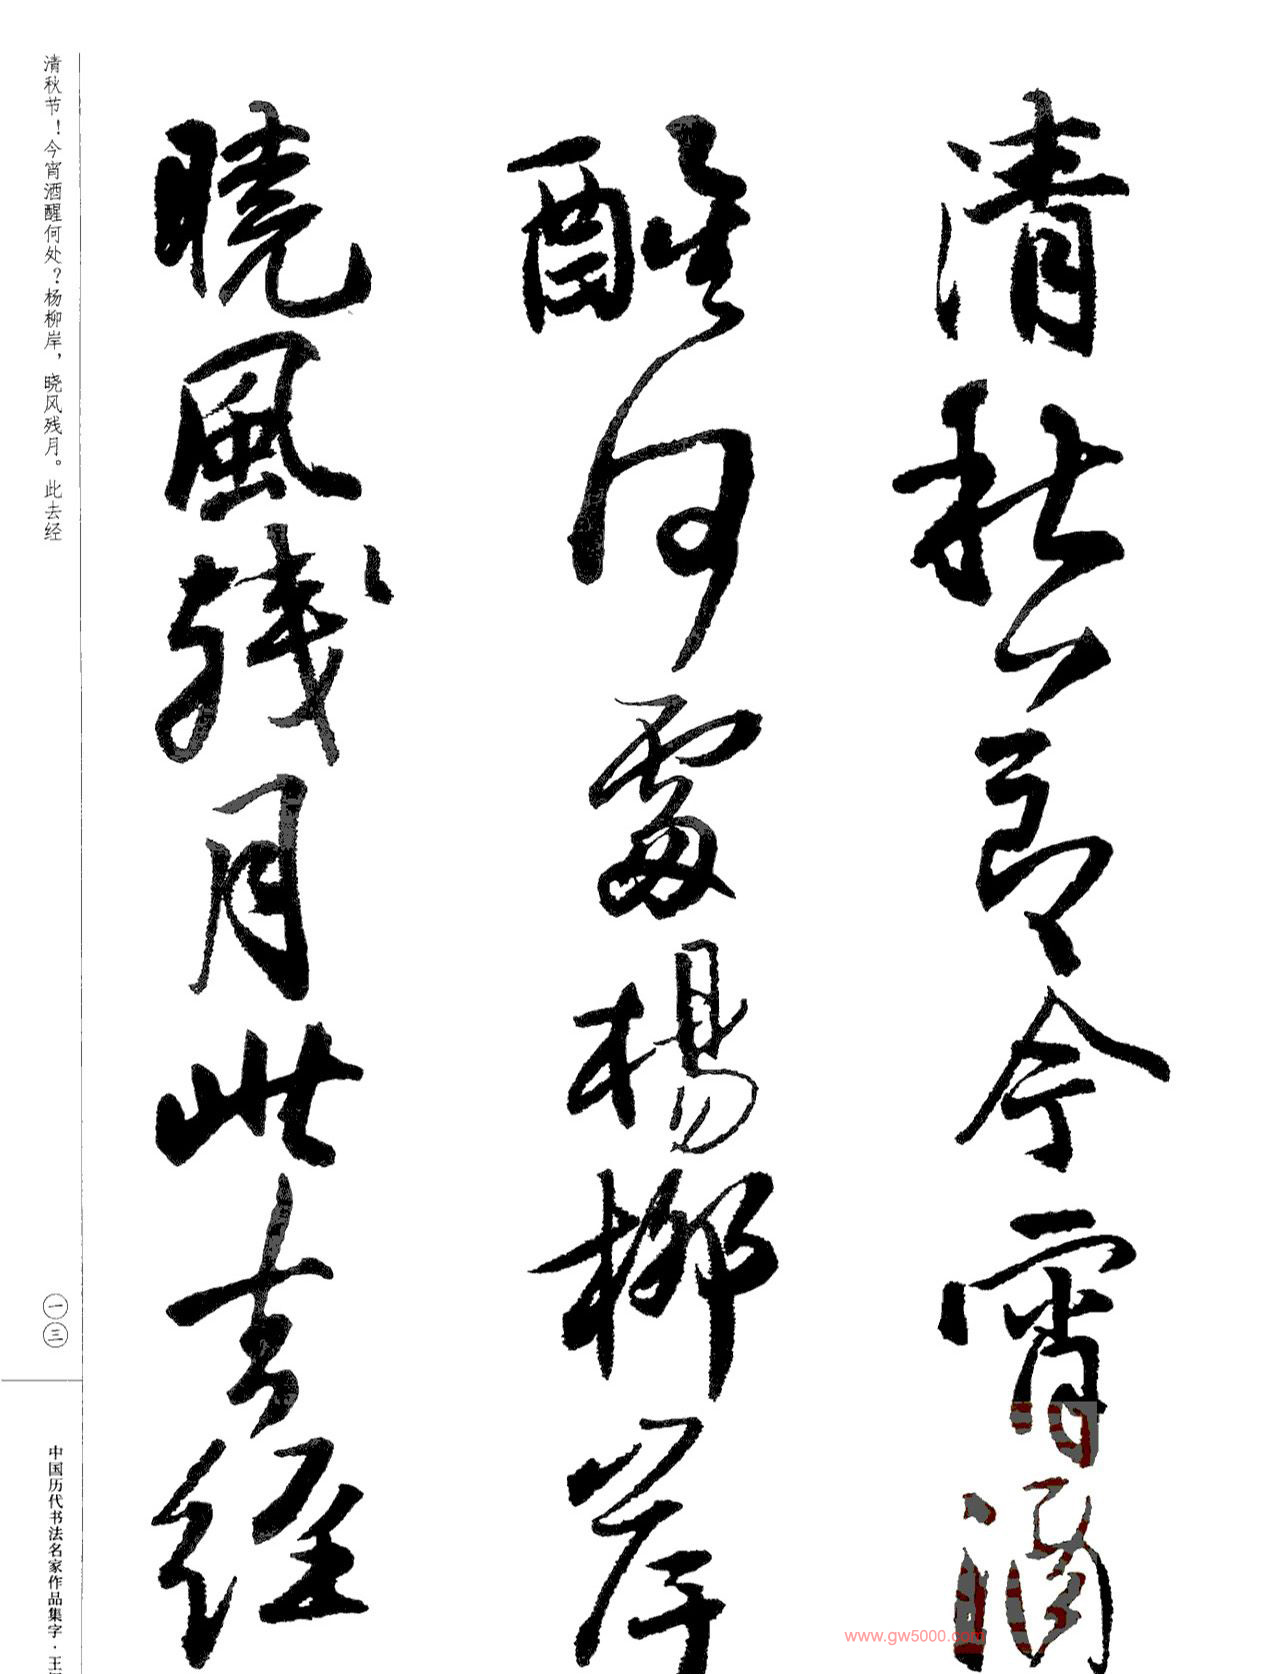 清秋節今宵酒
醒何處楊柳岸
曉風殘月此去經
清秋节！今宵酒醒何处？杨柳岸，晓风残月。此去经
一三
中国历代书法名家作品集字·王
www.gw5000.com